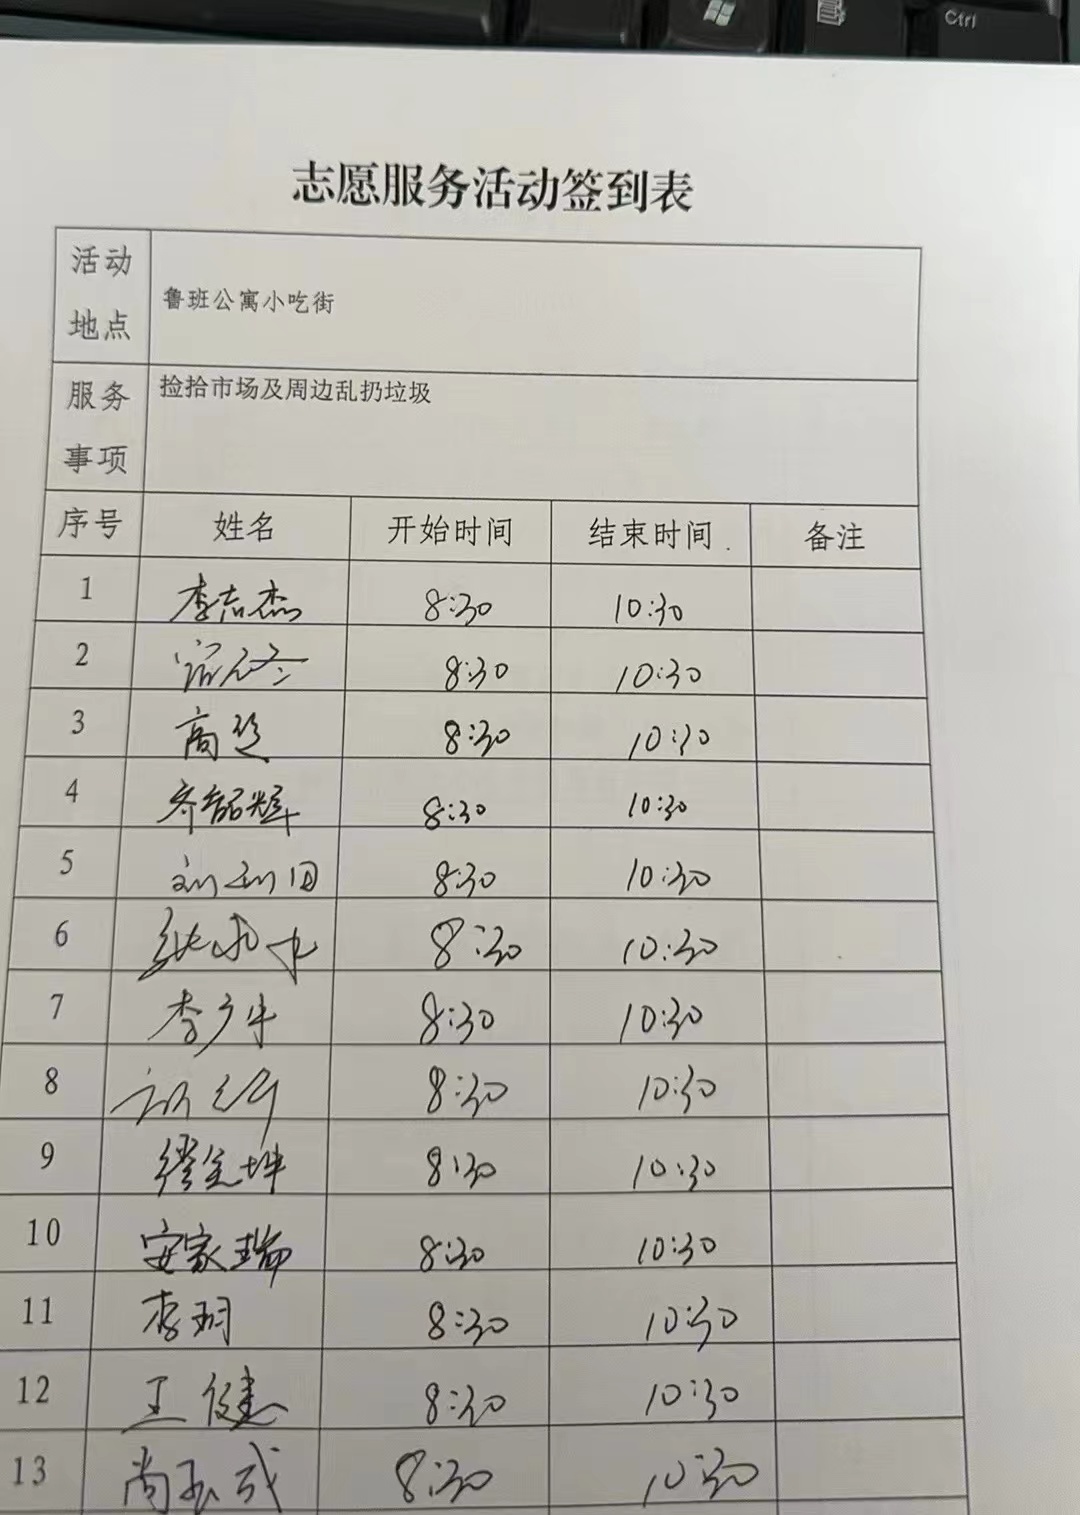 Ctrl
志愿服务活动签到表
活动地点 鲁班公寓小吃街
服务事项 捡拾市场及周边乱扔垃圾
序号 姓名 开始时间 结束时间 备注
1 李志杰 8:30 10:30
2 8:30 10:30
3 高 8:30 10:30
4 齐韶辉 8:30 10:30
5 8:30 10:30
6 8:30 10:30
7 李少牛 8:30 10:30
8 8:30 10:30
9 缪宝坤 8:30 10:30
10 安家瑞 8:30 10:30
11 李玥 8:30 10:30
12 王健 8:30 10:30
13 尚玉成 8:30 10:30